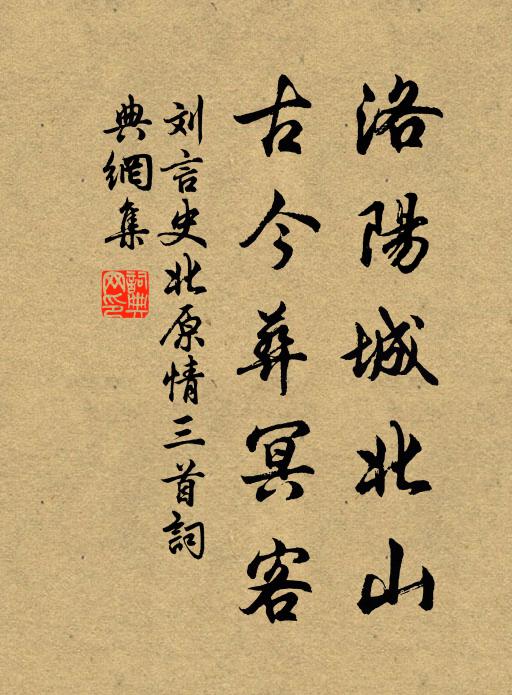 洛陽城北山
古今葬冥客
刘言史北原情三首詞
典網集
詞典
网印